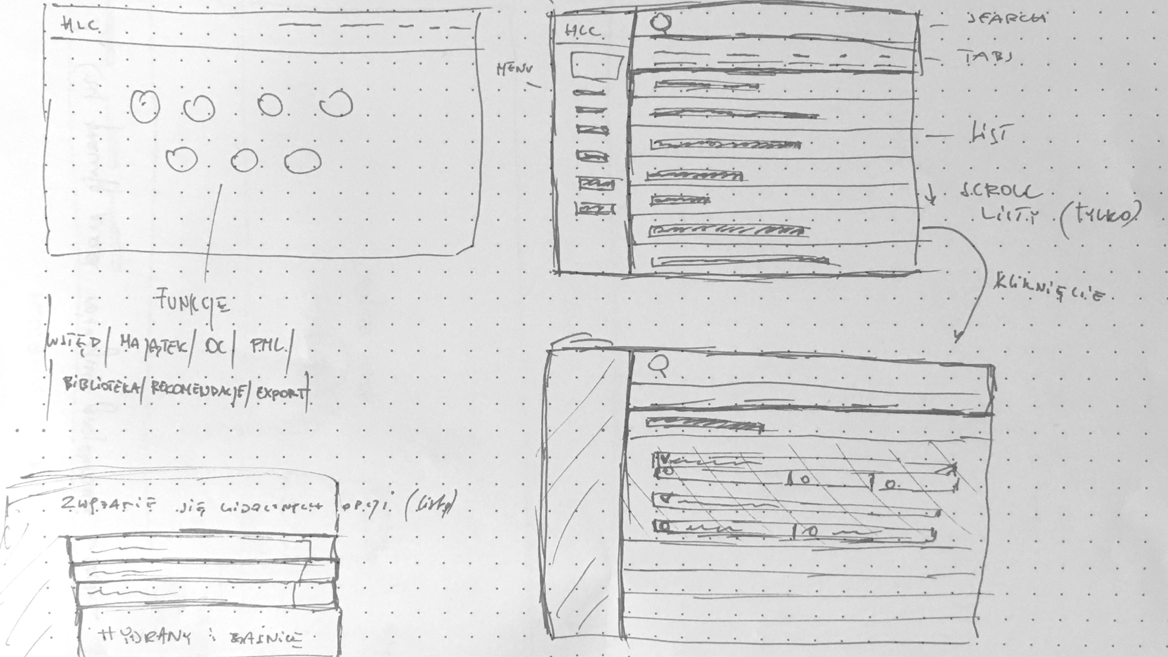 HLC
FUNKCJE
WSTĘP / MAJĄTEK / OC / PML /
BIBLIOTEKA / REKOMENDACJE / EXPORT
HLC
MENU
SEARCH
TABS
LIST
SCROLL
LISTY (TYLKO)
KLIKNIĘCIE
ZWIJANIE SIĘ WIDOCZNYCH OPCJI (listy)
HYDRANY I GAŚNICE